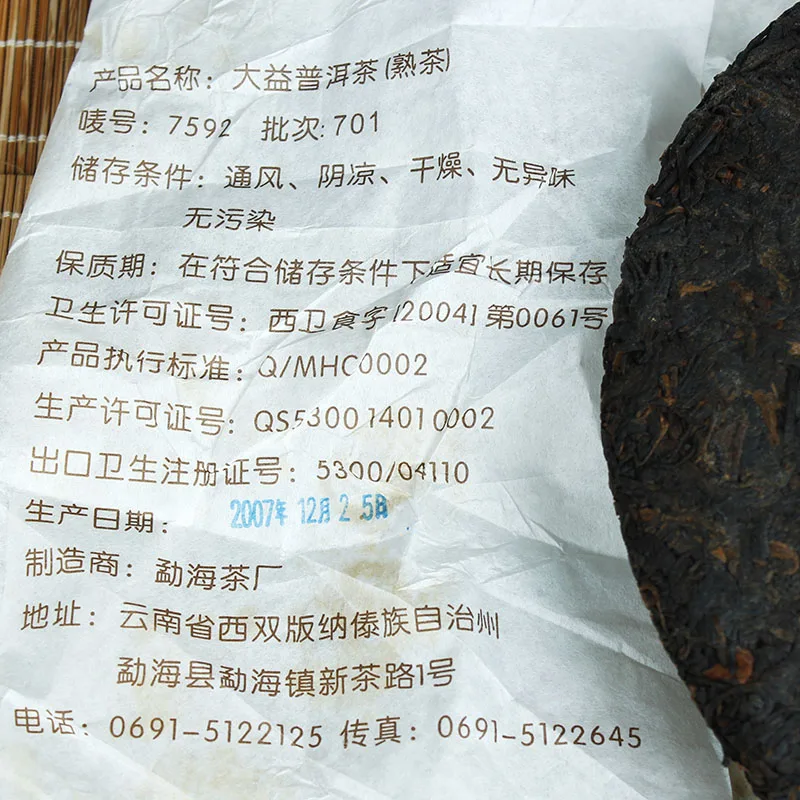 产品名称：大益普洱茶(熟茶)
唛号：7592 批次:701
储存条件：通风、阴凉、干燥、无异味
无污染
保质期：在符合储存条件下适宜长期保存
卫生许可证号：西卫食字[2004]第0061号
产品执行标准：Q/MHC0002
生产许可证号：QS530014010002
出口卫生注册证号：5300/04110
生产日期：2007年12月25日
制造商：勐海茶厂
地址：云南省西双版纳傣族自治州
勐海县勐海镇新茶路1号
电话：0691-5122125 传真：0691-5122645